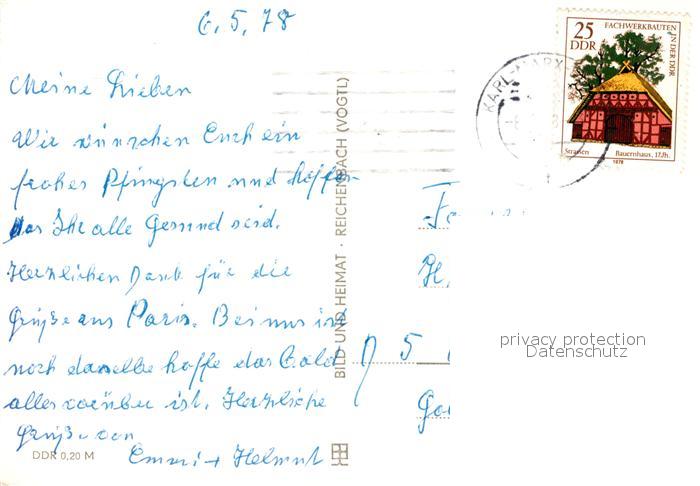 6.5.78
Meine Lieben
Wir wünschen Euch ein
frohes Pfingsten und hoffe
das Ihr alle Gesund seid.
Herzlichen Dank für die
Grüße aus Paris. Bei uns ist
noch dasselbe hoffe das Bald
alles vorüber ist. Herzliche
Grüße von
Emmi + Helmut
DDR 0,20 M
BILD UND HEIMAT · REICHENBACH (VOGTL)
25
DDR
FACHWERKBAUTEN
IN DER DDR
Strassen Bauernhaus, 17.Jh.
1978
KARL-MARX-
Fa
H.
D 5
Go
privacy protection
Datenschutz